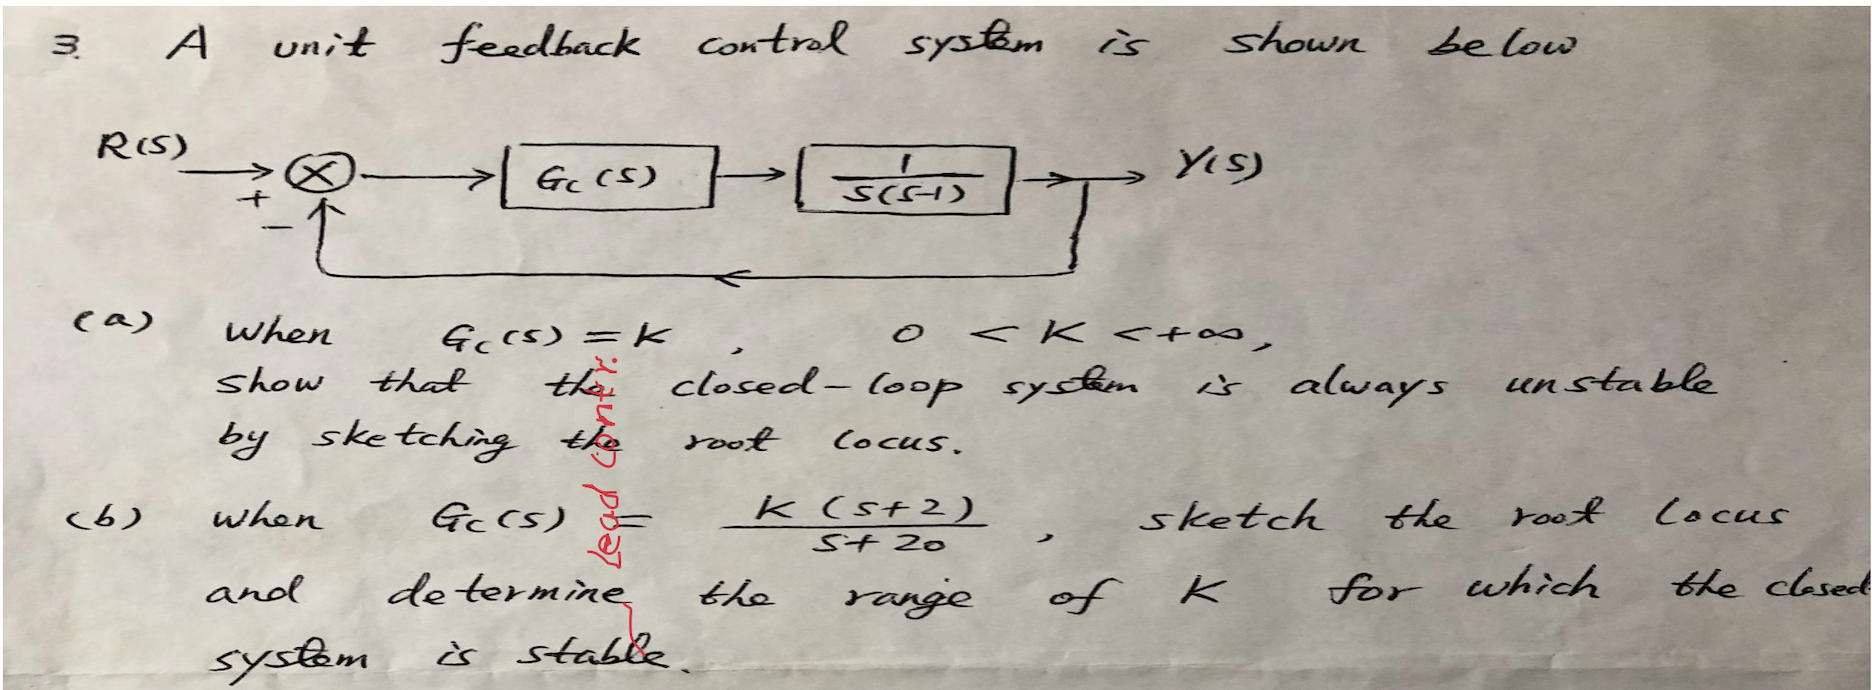 3. A unit feedback control system is shown below
R(S) + − Gc(S) 1/S(S-1) Y(S)
(a) when Gc(s) = K , 0 < K < +∞,
show that the closed-loop system is always unstable
by sketching the root locus.
(b) when Gc(s) = K(S+2)/S+20 , sketch the root locus
and determine the range of K for which the closed
system is stable.
Lead contr.